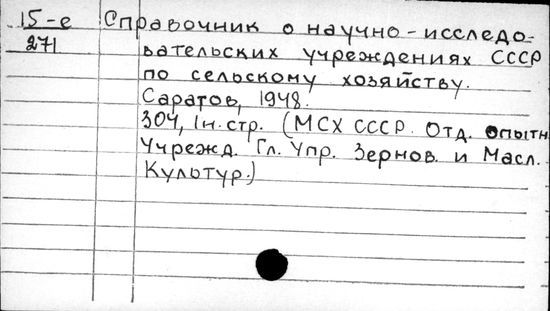 15-е Справочник о научно-исследо-
271 вательских учреждениях СССР
по сельскому хозяйству.
Саратов, 1948.
304, 1н.стр. (МСХ СССР. Отд. опытн.
Учрежд. Гл. Упр. Зернов. и Масл.
Культур.)